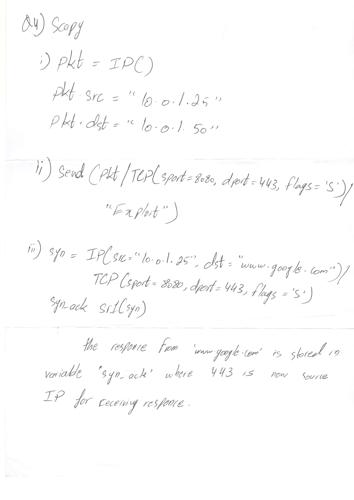 Q4) Scapy
i) pkt = IP()
pkt.src = "10.0.1.25"
pkt.dst = "10.0.1.50"
ii) send (pkt/TCP(sport=8080, dport=443, flags='S')/
"Exploit")
iii) syn = IP(src="10.0.1.25", dst="www.google.com")/
TCP(sport=8080, dport=443, flags='S')
syn_ack sr1(syn)
the response from 'www.google.com' is stored in
variable 'syn_ack' where 443 is now source
IP for receiving response.